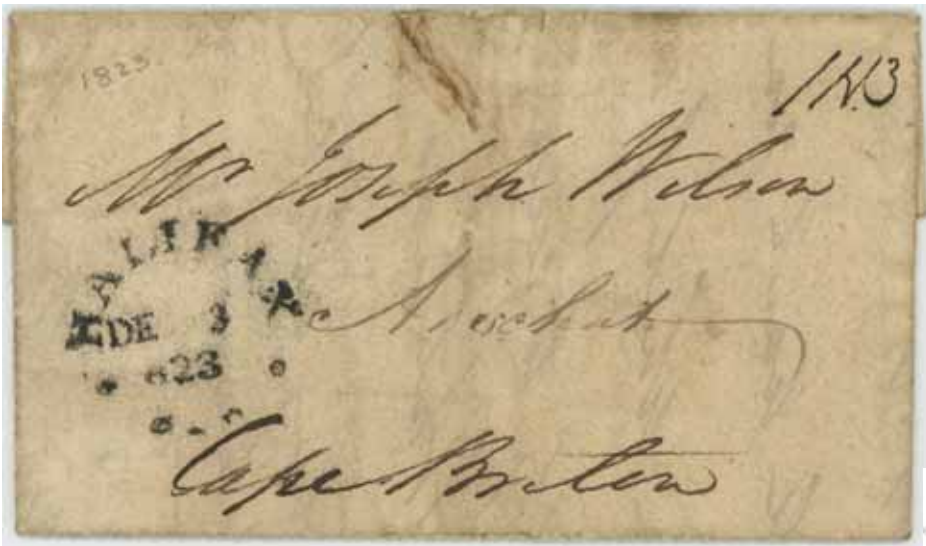 1823.
1N.3
Mr Joseph Wilson
HALIFAX
DE 3
823
Arichat
Cape Breton